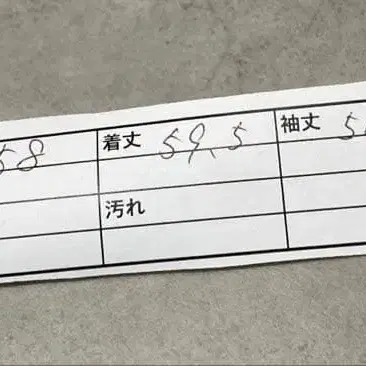 58 着丈 59.5 袖丈
汚れ